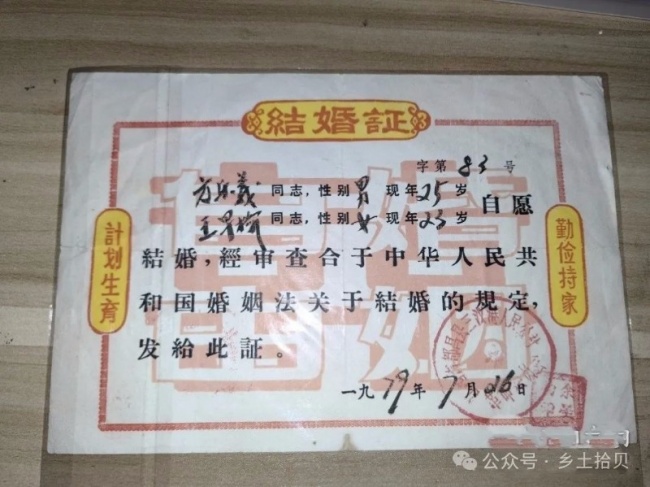 結婚証
字第83号
同志,性别男 现年25岁
同志,性别女 现年23岁
自愿
結婚,經审查合于中华人民共
和国婚姻法关于結婚的規定,
发給此証。
一九79年7月26日
計划生育
勤俭持家
婚姻
公众号·乡土拾贝